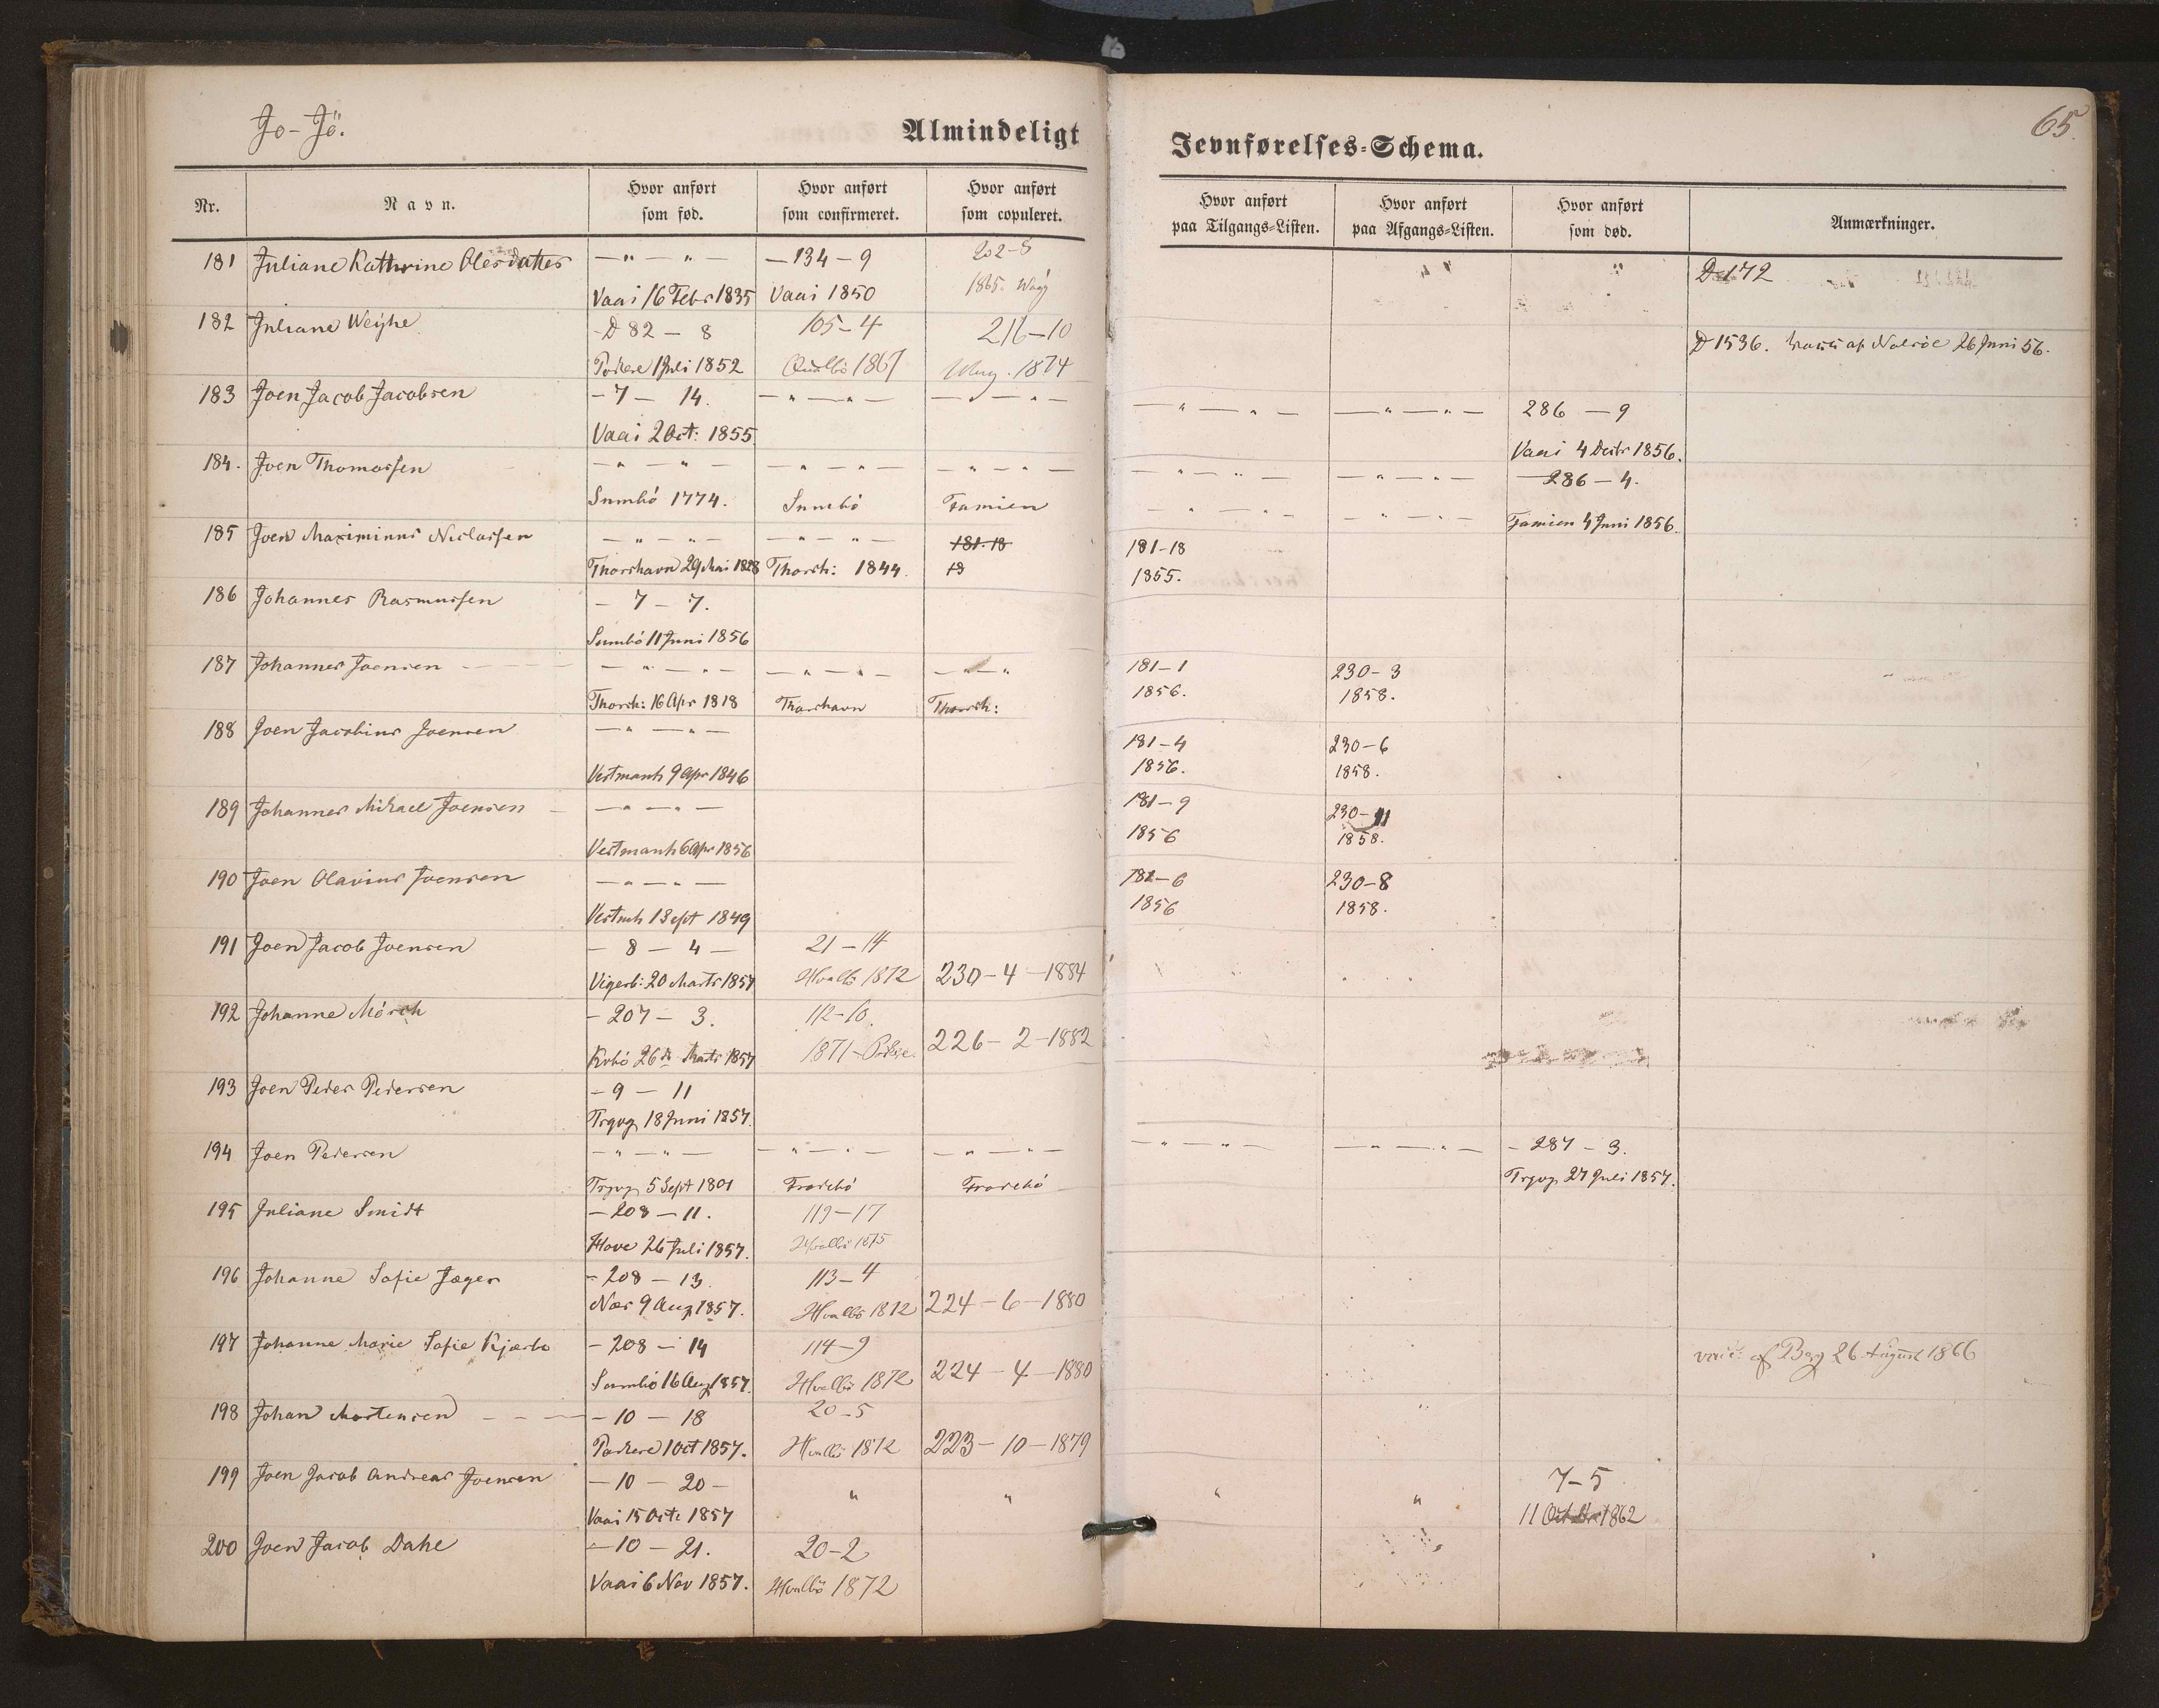 Jo-Jö.
Almindeligt
Jevnførelses-Schema.
65.
Nr.
Navn.
Hvor anført som fød.
Hvor anført som confirmeret.
Hvor anført som copuleret.
Hvor anført paa Tilgangs-Listen.
Hvor anført paa Afgangs-Listen.
Hvor anført som død.
Anmærkninger.
181 Juliane Kathrine Olesdatter — " — " — — 134 — 9 202-5 " " " D 172
Vaai 16 Febr 1835 Vaai 1850 1865. Waag
182 Juliane Weyhe - D 82 — 8 105-4 216-10 D 1536. af Nolsöe 26 Juni 56.
Porkere 1 Juli 1852 Qualbö 1867 1874
183 Joen Jacob Jacobsen - 7 — 14. — " — " — — " — " — — " — " — — " — " — 286 — 9
Vaai 2 Oct: 1855 Vaai 4 Decbr 1856.
184. Joen Thomassen — " — " — — " — " — — " — " — — " — " — — " — " — 286 — 4.
Sumbö 1774. Sumbö Famien — " — " — — " — " — Famien 4 Juni 1856.
185 Joen Maximinus Niclassen — " — " — — " — " — 181-18 181-18
Thorshavn 29 Mai 1828 Thorsh: 1844. 18 1855.
186 Johannes Rasmussen — 7 — 7.
Sumbö 11 Juni 1856
187 Johannes Joensen — " — " — — " — " — — " — " 181-1 230-3
Thorsh: 16 Apr 1818 Thorshavn Thorsh: 1856. 1858.
188 Joen Jacobinus Joensen — " — " — 181-4 230-6
Vestmanh 9 Apr 1846 1856. 1858.
189 Johannes Mikael Joensen — " — " — 181-9 230-11
Vestmanh 6 Apr 1856 1856 1858.
190 Joen Olavius Joensen — " — " — 181-6 230-8
Vestmh 1 Sept 1849 1856 1858.
191 Joen Jacob Joensen — 8 — 4 — 21-14
Vigerb: 20 Marts 1857 Hvalbö 1872 230-4-1884
192 Johanne Mörch - 207 — 3. 112-10.
Kvbö 26 Marts 1857 1871 Porkere. 226-2-1882
193 Joen Peder Pedersen - 9 — 11
Trgvg 18 Juni 1857.
194 Joen Pedersen — " — " — — " — " — — " — " — — " — " — — " — " — - 287 — 3.
Trgvg 5 Sept 1801 Frodebö Frodebö Trgvg 27 Juli 1857.
195 Juliane Smidt - 208 — 11. 119-17
Hove 26 Juli 1857. Hvalbö 1875
196 Johanne Sofie Jæger - 208 — 13. 113-4
Næs 9 Aug 1857. Hvalbö 1872 224-6-1880
197 Johanne Marie Sofie Kjærbo - 208 — 14 114-9 vacc: af Berg 26 August 1866
Sumbö 16 Aug 1857. Hvalbö 1872 224-4-1880
198 Johan Mortensen - 10 — 18 20-5
Porkere 1 Oct 1857. Hvalbö 1872 223-10-1879
199 Joen Jacob Andreas Joensen — 10 — 20 — " " " " 7-5
Vaai 15 Octr 1857 11 1862
200 Joen Jacob Dahl — 10 — 21. 20-2
Vaai 6 Nov 1857. Hvalbö 1872